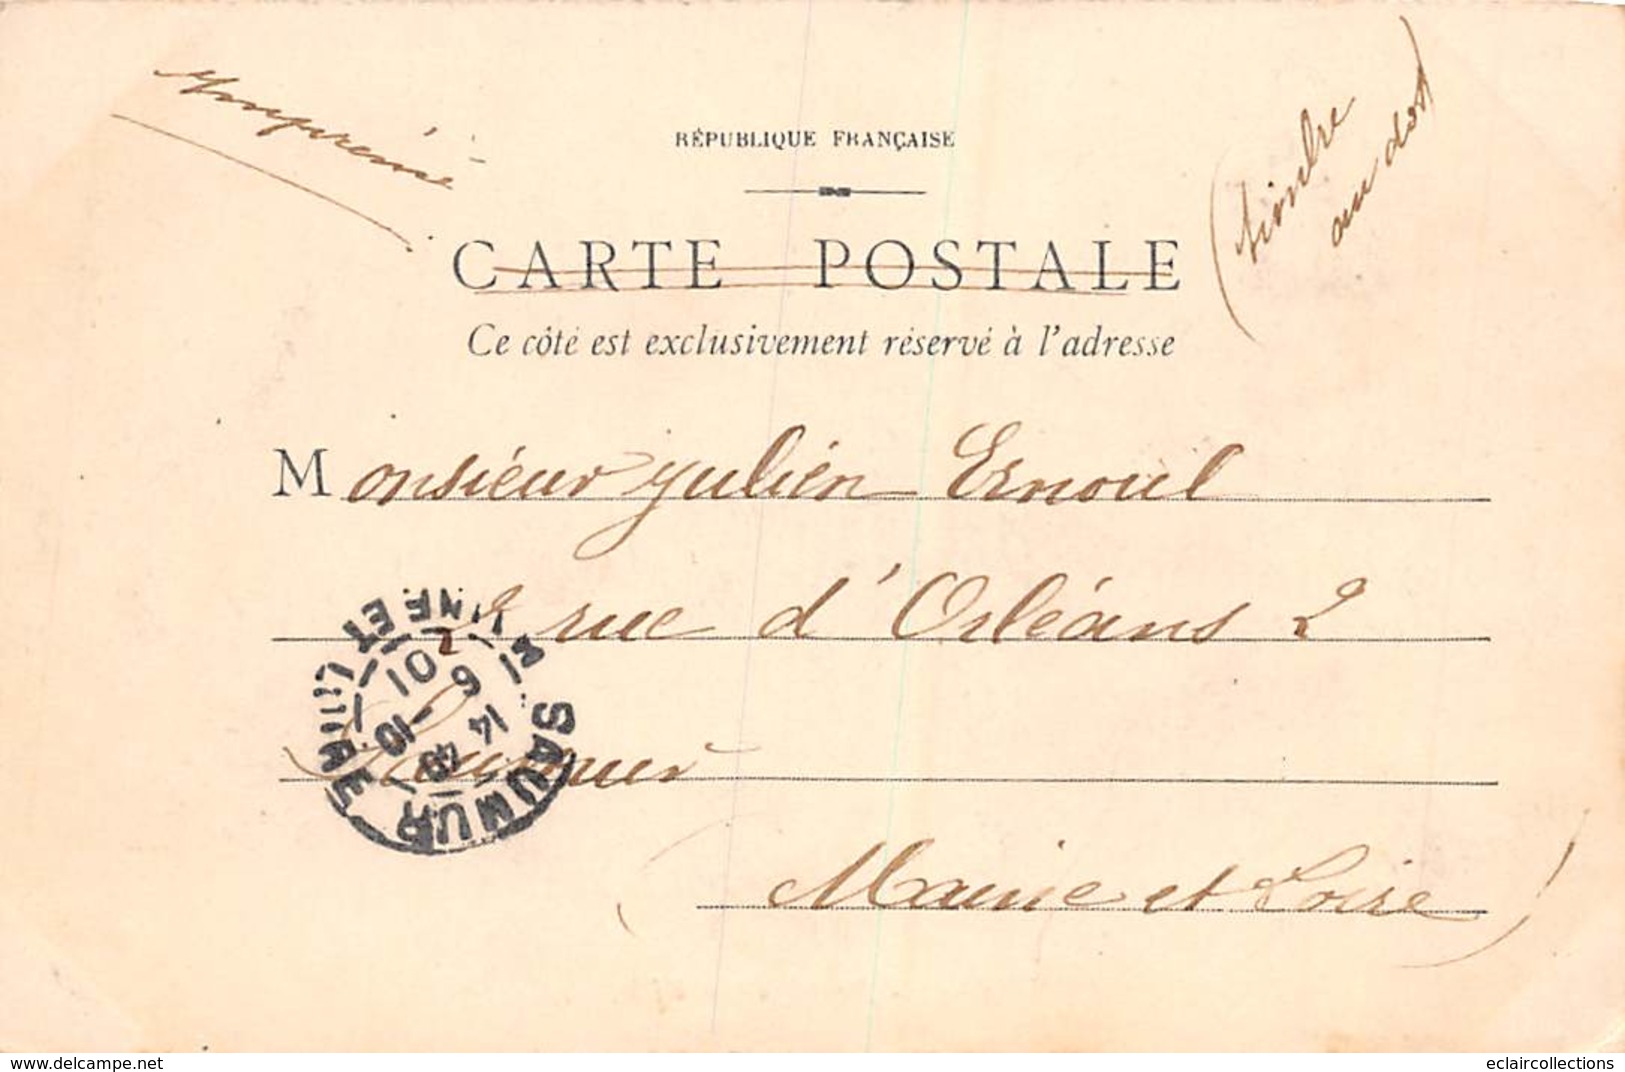 Imprimé
RÉPUBLIQUE FRANÇAISE
timbre
au dos
CARTE POSTALE
Ce côté est exclusivement réservé à l'adresse
Monsieur Julien Ernoul
2 rue d'Orléans 2
Saumur
(Maine et Loire)
SAUMUR
14 10
6 01
delcampe.net
eclaircollections